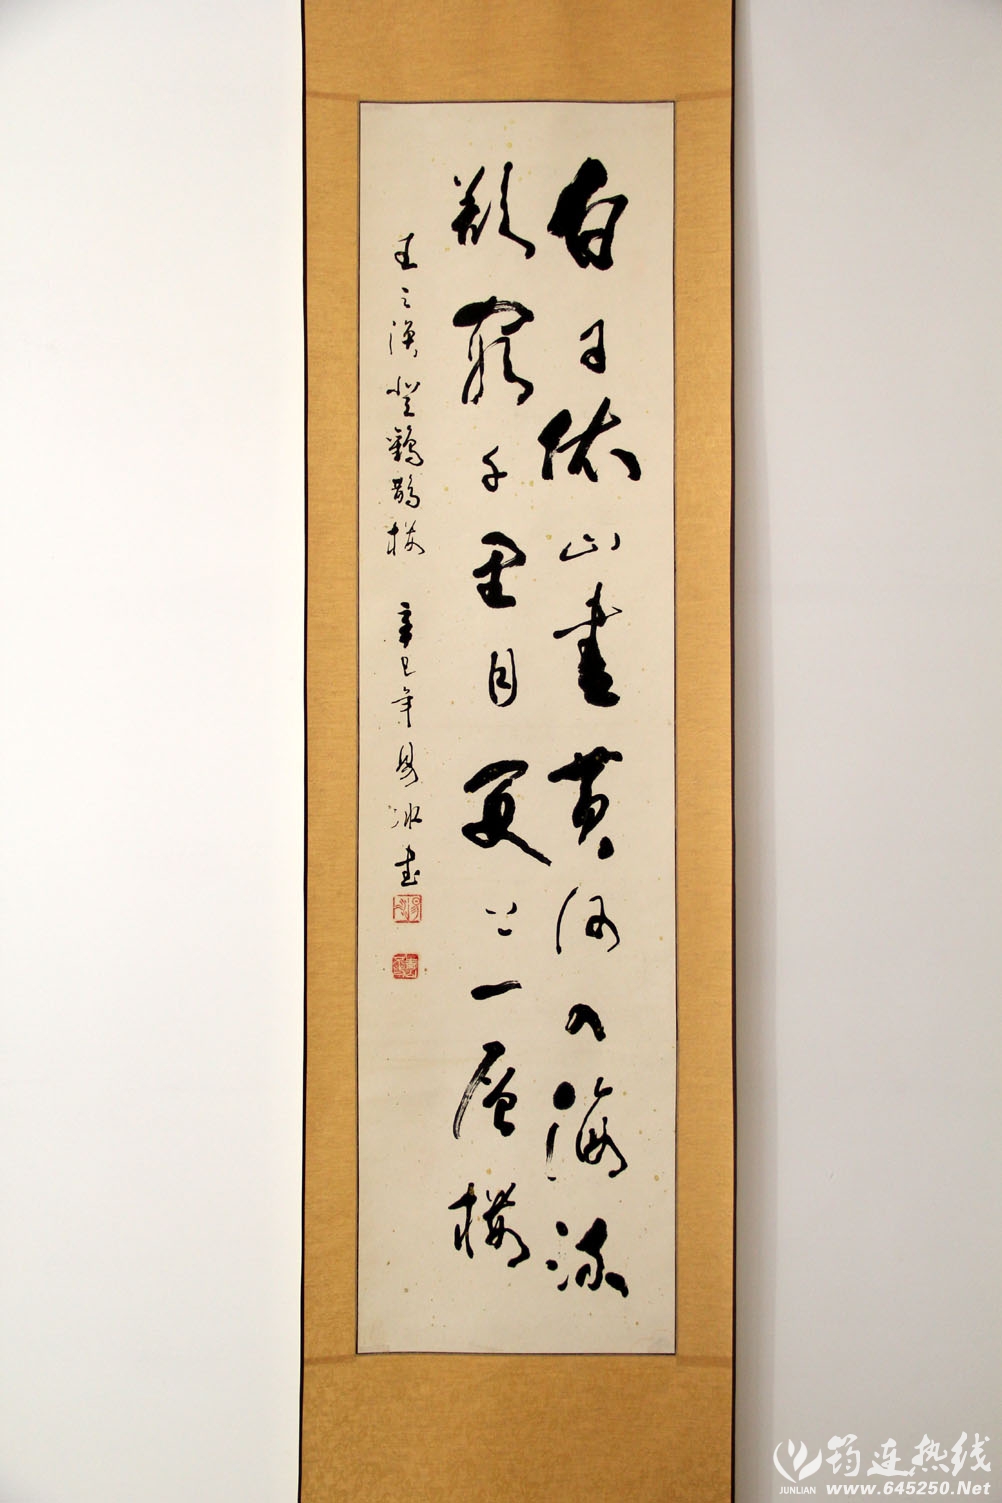 白日依山盡黄河入海流
欲窮千里目更上一層樓
王之渙登鸛鵲樓 辛巳年 冰書
筠连热线
JUNLIAN www.645250.Net